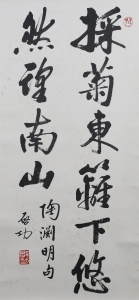 採菊東籬下悠
然望南山
陶淵明句
啟功